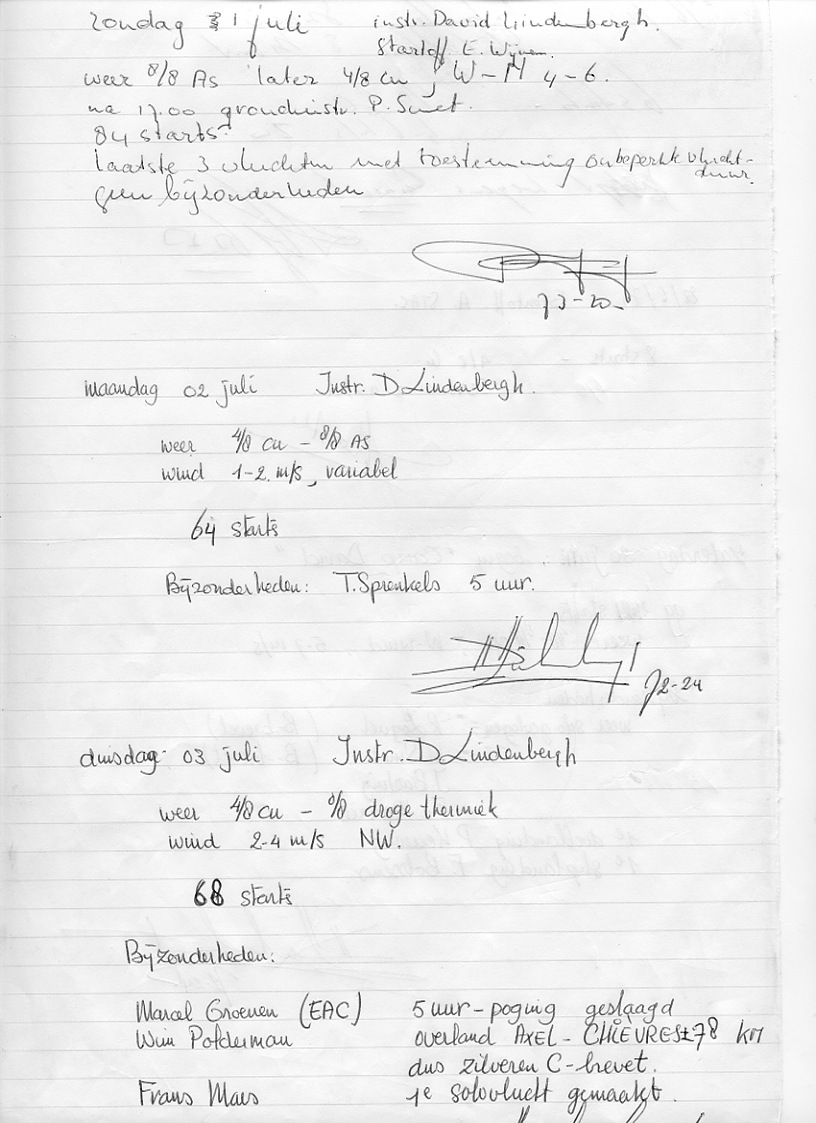 zondag 1 juli instr. David Lindenbergh.
startoff E. Wijnen.
weer 8/8 As later 4/8 cu, W-N 4-6.
na 17.00 grondinstr. P. Smet.
84 starts
laatste 3 vluchten met toestemming onbeperkte vlucht-
duur.
geen bijzonderheden
73-20
maandag 02 juli Instr. D Lindenbergh.
weer 4/8 cu - 8/8 As
wind 1-2 m/s, variabel
64 starts
Bijzonderheden: T. Sprenkels 5 uur.
72-24
dinsdag 03 juli Instr. D Lindenbergh
weer 4/8 cu - 0/8 droge thermiek
wind 2-4 m/s NW.
68 starts
Bijzonderheden:
Marcel Groenen (EAC) 5 uur-poging geslaagd
Wim Polderman overland AXEL - CHIEVRES ± 78 km
dus zilveren C-brevet.
Frans Maes 1e solovlucht gemaakt.